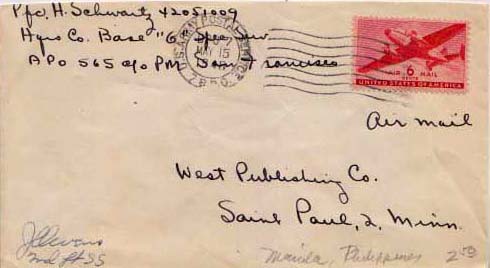 Pfc. H. Schwartz 42051009
Hqrs Co. Base "G" Spe Ser
APO 565 c/o PM San Francisco
U.S. ARMY POSTAL SERVICE
MAY 15
AIR 6 MAIL
CENTS
UNITED STATES OF AMERICA
Air mail
West Publishing Co.
Saint Paul, 2, Minn.
Manila, Philippines